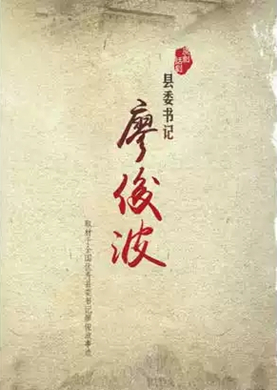 原创
话剧
县委书记
廖俊波
取材于全国优秀县委书记廖俊波事迹